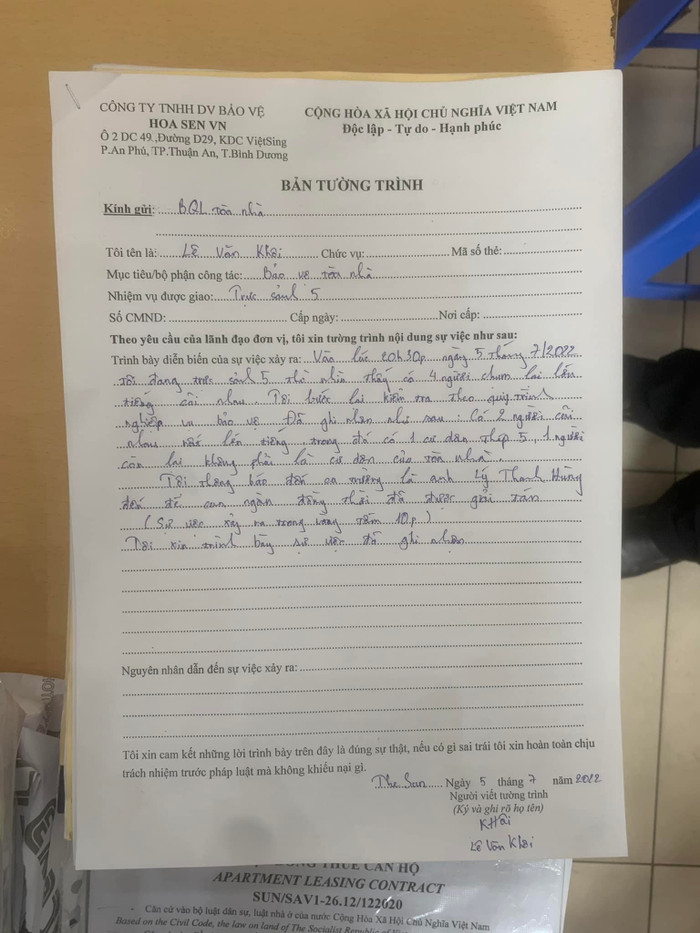 CÔNG TY TNHH DV BẢO VỆ
HOA SEN VN
Ô 2 DC 49 ,Đường D29, KDC ViệtSing
P.An Phú, TP.Thuận An, T.Bình Dương
CỘNG HÒA XÃ HỘI CHỦ NGHĨA VIỆT NAM
Độc lập - Tự do - Hạnh phúc
BẢN TƯỜNG TRÌNH
Kính gửi: BQL tòa nhà
Tôi tên là: Lê Văn Khôi Chức vụ: Mã số thẻ:
Mục tiêu/bộ phận công tác: Bảo vệ tòa nhà
Nhiệm vụ được giao: Trực sảnh 5
Số CMND: Cấp ngày: Nơi cấp:
Theo yêu cầu của lãnh đạo đơn vị, tôi xin tường trình nội dung sự việc như sau:
Trình bày diễn biến của sự việc xảy ra: Vào lúc 20h30p ngày 5 tháng 7/2022
Tôi đang trực sảnh 5 thì nhìn thấy có 4 người chụm lại lớn
tiếng cãi nhau. Tôi bước lại kiểm tra theo quy trình
nghiệp vụ bảo vệ. Đã ghi nhận như sau: Có 2 người cãi
nhau rất lớn tiếng, trong đó có 1 cư dân tháp 5, 1 người
còn lại không phải là cư dân của tòa nhà.
Tôi thông báo đến ca trưởng là anh Lý Thanh Hùng
đến để can ngăn đồng thời đã được giải tán
(Sự việc xảy ra trong vòng tầm 10p)
Tôi xin trình bày sự việc đã ghi nhận
Nguyên nhân dẫn đến sự việc xảy ra:
Tôi xin cam kết những lời trình bày trên đây là đúng sự thật, nếu có gì sai trái tôi xin hoàn toàn chịu
trách nhiệm trước pháp luật mà không khiếu nại gì.
The Sun Ngày 5 tháng 7 năm 2022
Người viết tường trình
(Ký và ghi rõ họ tên)
KHôi
Lê Văn Khôi
THUÊ CĂN HỘ
APARTMENT LEASING CONTRACT
SUN/SAV1-26.12/122020
- Căn cứ vào bộ luật dân sự, luật nhà ở của nước Cộng Hòa Xã Hội Chủ Nghĩa Việt Nam
Based on the Civil Code, the law on land of The Socialist Republic of